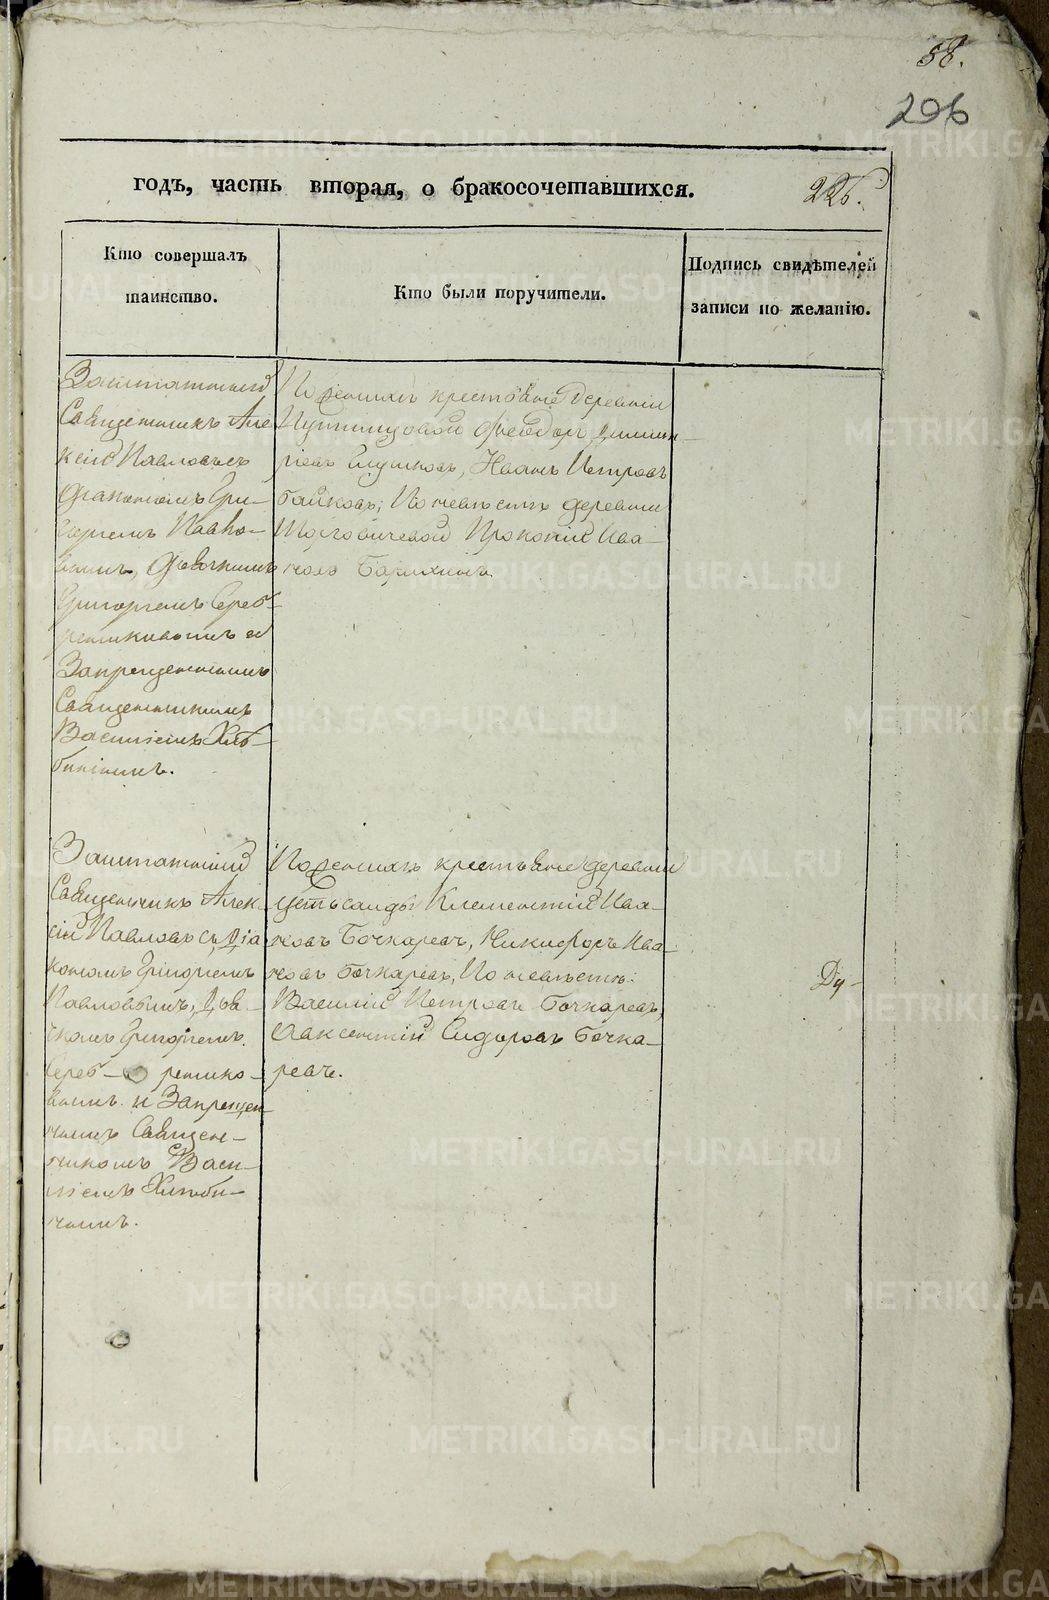 58.
206
годъ, часть вторая, о бракосочетавшихся.
226.
Кто совершалъ
таинство.
Кто были поручители.
Подпись свидѣтелей
записи по желанію.
Заштатный
Священникъ Але
ксій Павловъ съ
Діакономъ Гри-
горіемъ Павло-
вымъ, Дьячкомъ
Григоріемъ Сереб-
рениковымъ и
Запрещеннымъ
Священникомъ
Василіемъ Хлѣ-
бинымъ.
По женихѣ крестьяне деревни
Ѳеодоръ Димит-
ріевъ Иванъ Петровъ
Байковъ; По невѣстѣ деревни
Прокопій Ива-
новъ
Заштатный
Священникъ Алек-
сій Павловъ съ Діа
кономъ Григоріемъ
Павловымъ, Дья-
чкомъ Григоріемъ
Сереб- ренико-
вымъ и Запрещен-
нымъ Священ-
никомъ Васи-
ліемъ Хлѣби-
нымъ.
По женихѣ крестьяне деревни
Клементій Ива-
новъ Бочкаревъ, Никифоръ Ива-
новъ Бочкаревъ, По невѣстѣ:
Василій Петровъ Бочкаревъ,
Авксентій Сидоровъ Бочка-
ревъ.
Ду-
METRIKI.GASO-URAL.RU